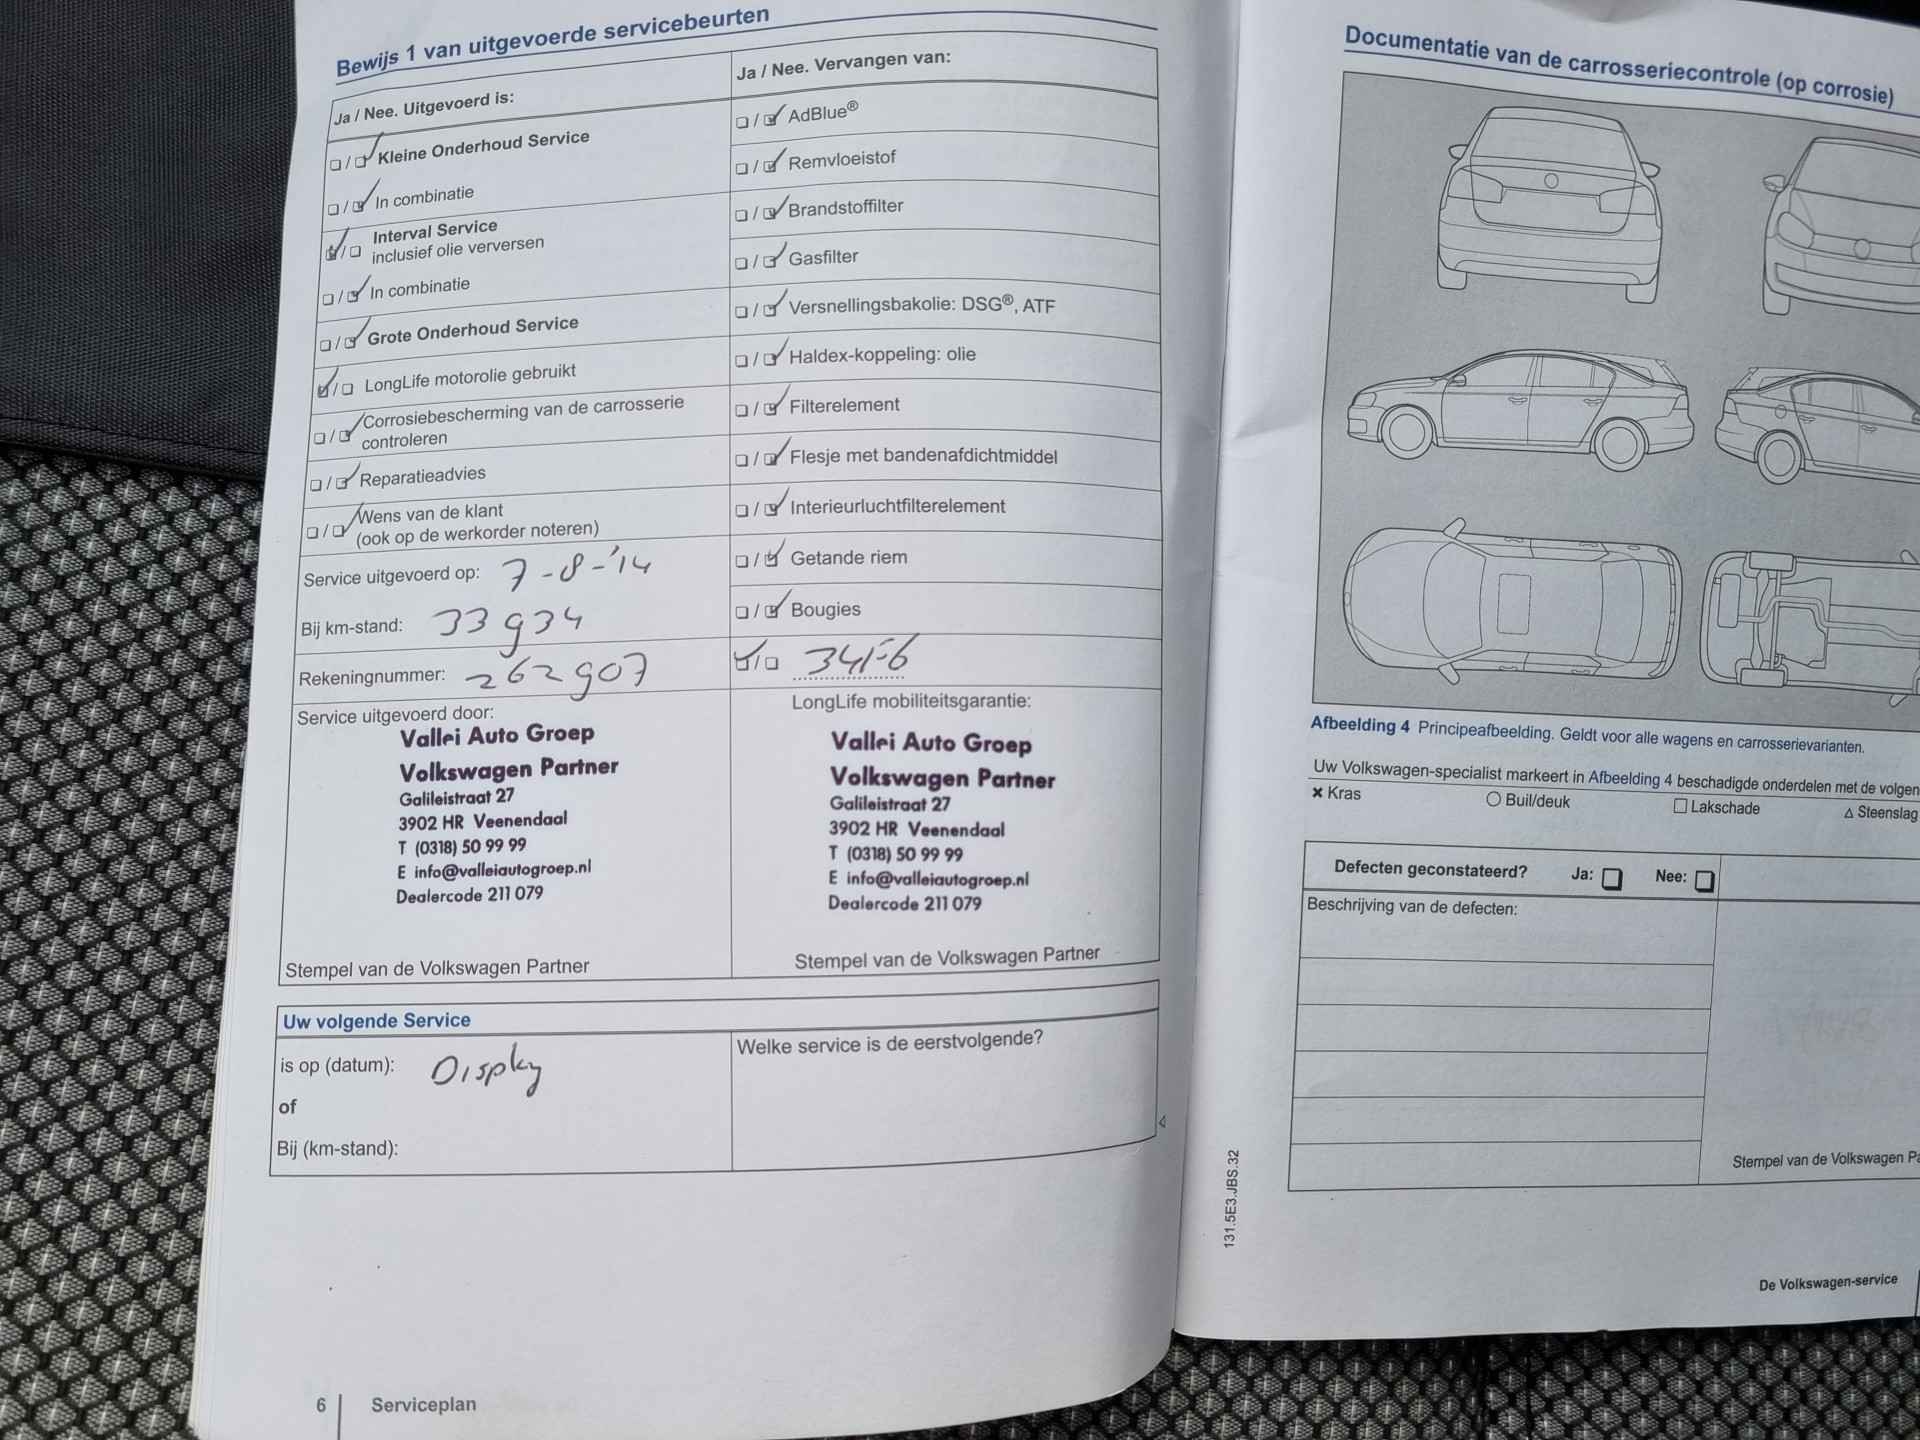 Bewijs 1 van uitgevoerde servicebeurten
Ja / Nee. Uitgevoerd is:
Kleine Onderhoud Service
In combinatie
Interval Service
inclusief olie verversen
In combinatie
Grote Onderhoud Service
LongLife motorolie gebruikt
Corrosiebescherming van de carrosserie
controleren
Reparatieadvies
Wens van de klant
(ook op de werkorder noteren)
Service uitgevoerd op: 7-8-'14
Bij km-stand: 33934
Rekeningnummer: 262907
Service uitgevoerd door:
Vallei Auto Groep
Volkswagen Partner
Galileistraat 27
3902 HR Veenendaal
T (0318) 50 99 99
E info@valleiautogroep.nl
Dealercode 211 079
Stempel van de Volkswagen Partner
Ja / Nee. Vervangen van:
AdBlue®
Remvloeistof
Brandstoffilter
Gasfilter
Versnellingsbakolie: DSG®, ATF
Haldex-koppeling: olie
Filterelement
Flesje met bandenafdichtmiddel
Interieurluchtfilterelement
Getande riem
Bougies
LongLife mobiliteitsgarantie:
Vallei Auto Groep
Volkswagen Partner
Galileistraat 27
3902 HR Veenendaal
T (0318) 50 99 99
E info@valleiautogroep.nl
Dealercode 211 079
Stempel van de Volkswagen Partner
Uw volgende Service
is op (datum): Display
of
Bij (km-stand):
Welke service is de eerstvolgende?
6 Serviceplan
Documentatie van de carrosseriecontrole (op corrosie)
Afbeelding 4 Principeafbeelding. Geldt voor alle wagens en carrosserievarianten.
Uw Volkswagen-specialist markeert in Afbeelding 4 beschadigde onderdelen met de volgen
Kras
Buil/deuk
Lakschade
Steenslag
Defecten geconstateerd? Ja: Nee:
Beschrijving van de defecten:
Stempel van de Volkswagen Pa
131.5E3.JBS.32
De Volkswagen-service